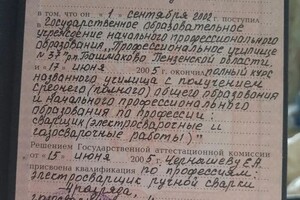 в том, что он " 1 " сентября 2002 г. поступил
в Государственное образовательное
учреждение начального профессионального
образования „Профессиональное училище
рп. Башмаково Пензенской области
и " июня 2005 г. окончил полный курс
названного училища с получением
среднего (полного) общего образования
и начального профессионального
образования по профессии:
сварщик (электросварочные и
газосварочные работы)"
Решением Государственной аттестационной комиссии
от " 15 " июня 2005 г. Чернышеву Е.А.
присвоена квалификация по профессиям:
электросварщик ручной сварки